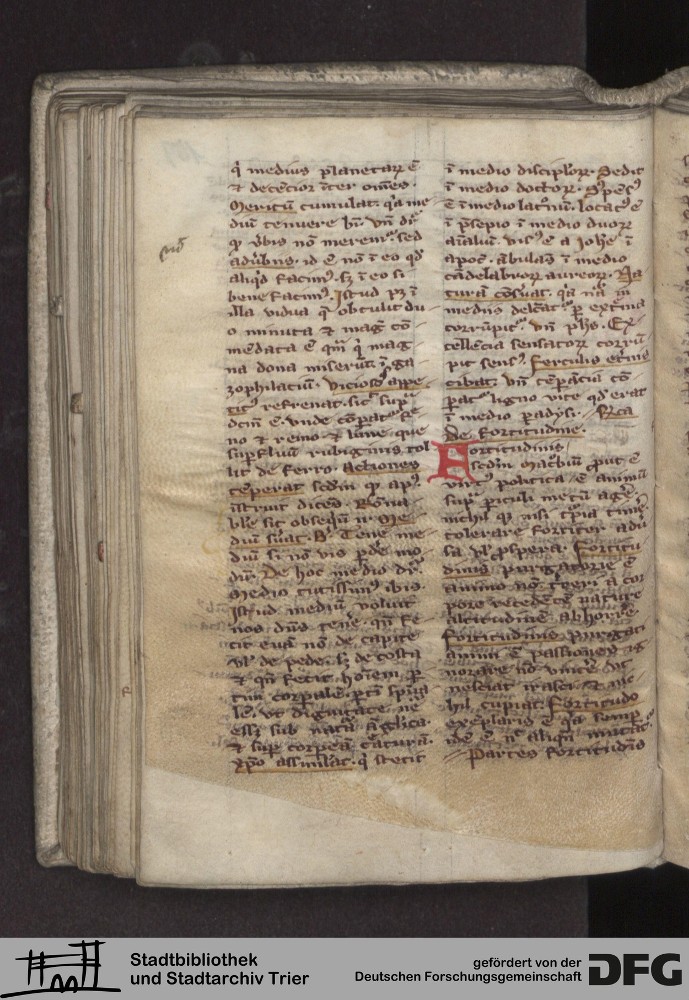 q̓ medius planetarꝝ ē
⁊ decētior īter om̄es.
Meritū cumulat. q̓a me
diū tenuere bn̄. vn̄ dr̄
ꝙ v̓bis nō merem᷒. sed
adu̓biis. id ē nō ī eo qd̓
aliq̓d facim᷒. sꝫ ī eo si
bene facim᷒. Istud pꝫ ī
illa vidua q̄ obtulit du
o minuta ⁊ mag̓ cō
mēdata ē qm̄ q̓ mag
na dona miserūt ī ga
zophilatiū. Vicios᷒ appe
tit᷒ refrenat. sic᷒ sup̓
dcm̄ ē. vnde cōparat᷒ fe
no ⁊ remo ⁊ lime que
superfluū rubiginis tol
lit de ferro. Actiones
tēperat scdm̄ ꝙ ap᷒
īstruit dicēs. Rōna
bile sit obsequiū vr̄. Me
diū seruat. Tene me
diū si nō vis p̄de mo
dū. De hoc medio dr̄.
Medio tutissim᷒ ibis.
Istud mediū voluit
nos dn̄s tene᷒. qn̄ fe
cit euā nō de capite
vl̓ de pede. sꝫ de costa
⁊ qn̄ fecit hoīem ꝑ
tim corꝑalē. ꝑtī spūal
lē. vt dignitate
eēt sub natā āglica.
⁊ sup̓ corpeā c̓aturā.
xp̄o assimilat. q̓ stetit
ī medio disciploꝝ. Sedit
ī medio doctoꝝ. Spēs᷒
ē ī medio lat̓onū. locat᷒ ē
ī p̄sepio ī medio duoꝝ
aīaliū. vis᷒ ē a ioh̄e ī
apoc̓. ābulās ī medio
cādelabroꝝ aureoꝝ. Na
turā cōseruat. q̓a nā ī
mediis delc̄at᷒. ꝑ ext̄ma
corrūpit᷒. vn̄ ph̓s. Ex
cellētia sensatoꝝ corrū
pit sens᷒. Ferculis et̓nis
cibat. vn̄ tēꝑātia cō
ꝑat᷒ ligno vite qd̓ erat
ī medio paradysi. Rca
De fortitudine.
Fortitudinis
scdm̄ Macbiū ꝓut ē
virt᷒ politica ē animū
sup̓ periculi metū age᷒.
nichil qꝫ nisi turpia time᷒.
tolerare fortiter adu̓
sa vl̓ ꝓspera. Fortitu
dinis purgatorie ē
animo nō terreri a cor
pore recedētē nature
altitudinē abhorre᷒.
Fortitudinis purgati
animi ē passiones ig
norare nō vinc̓e vt
nesciat irasci. ⁊ ni
hil cupiat. Fortitudo
exeplaris ē q̓a semp̄
idē ē nc̄ aliqn̄ mutat᷒.
Partes fortitudinis
Stadtbibliothek
und Stadtarchiv Trier
gefördert von der
Deutschen Forschungsgemeinschaft
DFG